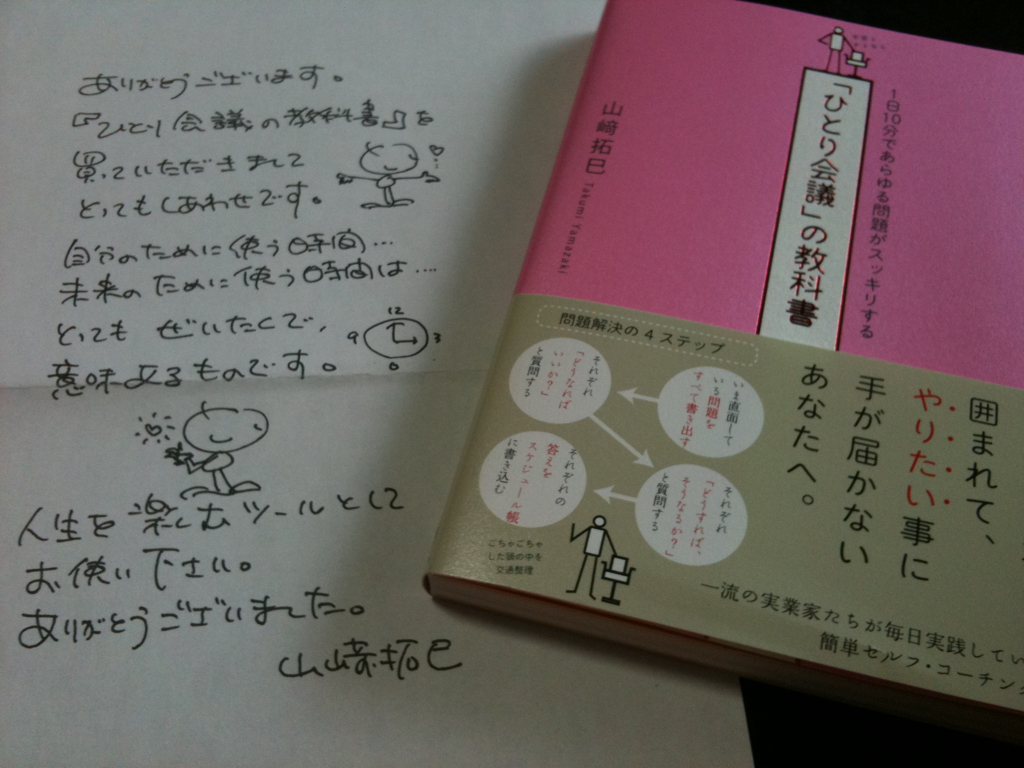 ありがとうございます。
『ひとり会議の教科書』を
買っていただきまして
とってもしあわせです。
自分のために使う時間…
未来のために使う時間は…
とってもぜいたくで、
意味あるものです。
12
9
3
人生を楽しむツールとして
お使い下さい。
ありがとうございました。
山﨑拓巳
1日10分であらゆる問題がスッキリする
「ひとり会議」の教科書
山﨑拓巳
Takumi Yamazaki
囲まれて、
やりたい事に
手が届かない
あなたへ。
問題解決の4ステップ
いま直面して
いる問題を
すべて書き出す
それぞれ
「どうなれば
いいか?」
と質問する
それぞれ
「どうすれば、
そうなるか?」
と質問する
それぞれの
答えを
スケジュール帳
に書き込む
ごちゃごちゃ
した頭の中を
交通整理
一流の実業家たちが毎日実践してい
簡単セルフ・コーチン